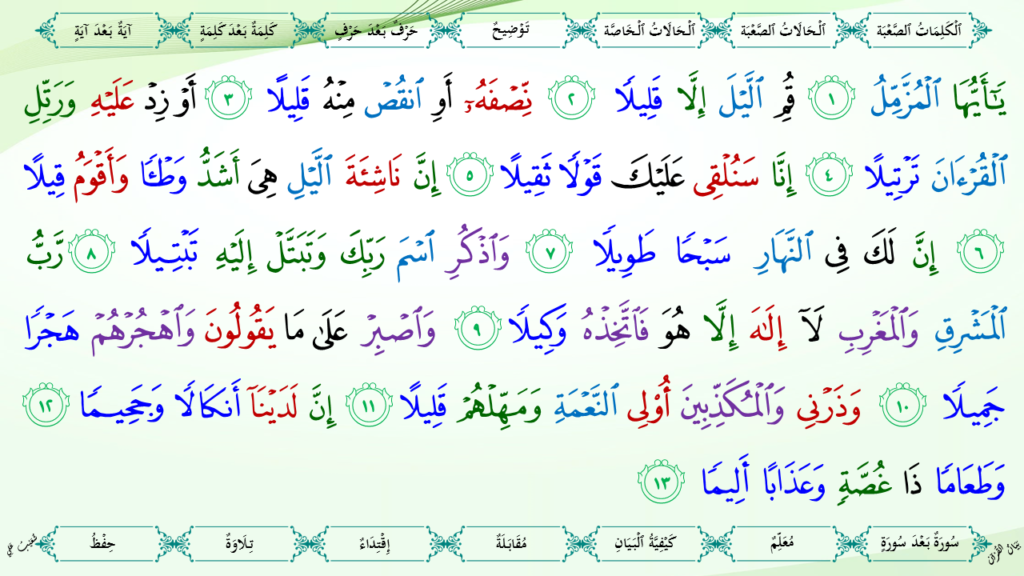 ٱلْكَلِمَاتُ ٱلصَّعْبَة ٱلْحَالَاتُ ٱلصَّعْبَة ٱلْحَالَاتُ ٱلْخَاصَّة تَوْضِيحٌ حَرْفٌ بَعْدَ حَرْفٍ كَلِمَةٌ بَعْدَ كَلِمَةٍ آيَةٌ بَعْدَ آيَةٍ
يَـٰٓأَيُّهَا ٱلْمُزَّمِّلُ ١ قُمِ ٱلَّيْلَ إِلَّا قَلِيلًا ٢ نِّصْفَهُۥٓ أَوِ ٱنقُصْ مِنْهُ قَلِيلًا ٣ أَوْ زِدْ عَلَيْهِ وَرَتِّلِ
ٱلْقُرْءَانَ تَرْتِيلًا ٤ إِنَّا سَنُلْقِى عَلَيْكَ قَوْلًا ثَقِيلًا ٥ إِنَّ نَاشِئَةَ ٱلَّيْلِ هِىَ أَشَدُّ وَطْـًٔا وَأَقْوَمُ قِيلًا
٦ إِنَّ لَكَ فِى ٱلنَّهَارِ سَبْحًا طَوِيلًا ٧ وَٱذْكُرِ ٱسْمَ رَبِّكَ وَتَبَتَّلْ إِلَيْهِ تَبْتِيلًا ٨ رَّبُّ
ٱلْمَشْرِقِ وَٱلْمَغْرِبِ لَآ إِلَـٰهَ إِلَّا هُوَ فَٱتَّخِذْهُ وَكِيلًا ٩ وَٱصْبِرْ عَلَىٰ مَا يَقُولُونَ وَٱهْجُرْهُمْ هَجْرًا
جَمِيلًا ١٠ وَذَرْنِى وَٱلْمُكَذِّبِينَ أُو۟لِى ٱلنَّعْمَةِ وَمَهِّلْهُمْ قَلِيلًا ١١ إِنَّ لَدَيْنَآ أَنكَالًا وَجَحِيمًا ١٢
وَطَعَامًا ذَا غُصَّةٍ وَعَذَابًا أَلِيمًا ١٣
سُورَةٌ بَعْدَ سُورَةٍ مُعَلِّمٌ كَيْفِيَّةُ ٱلْبَيَانِ مُقَابَلَةٌ إِقْتِدَاءٌ تِلَاوَةٌ حِفْظٌ
بَيَانُ القُرْآن